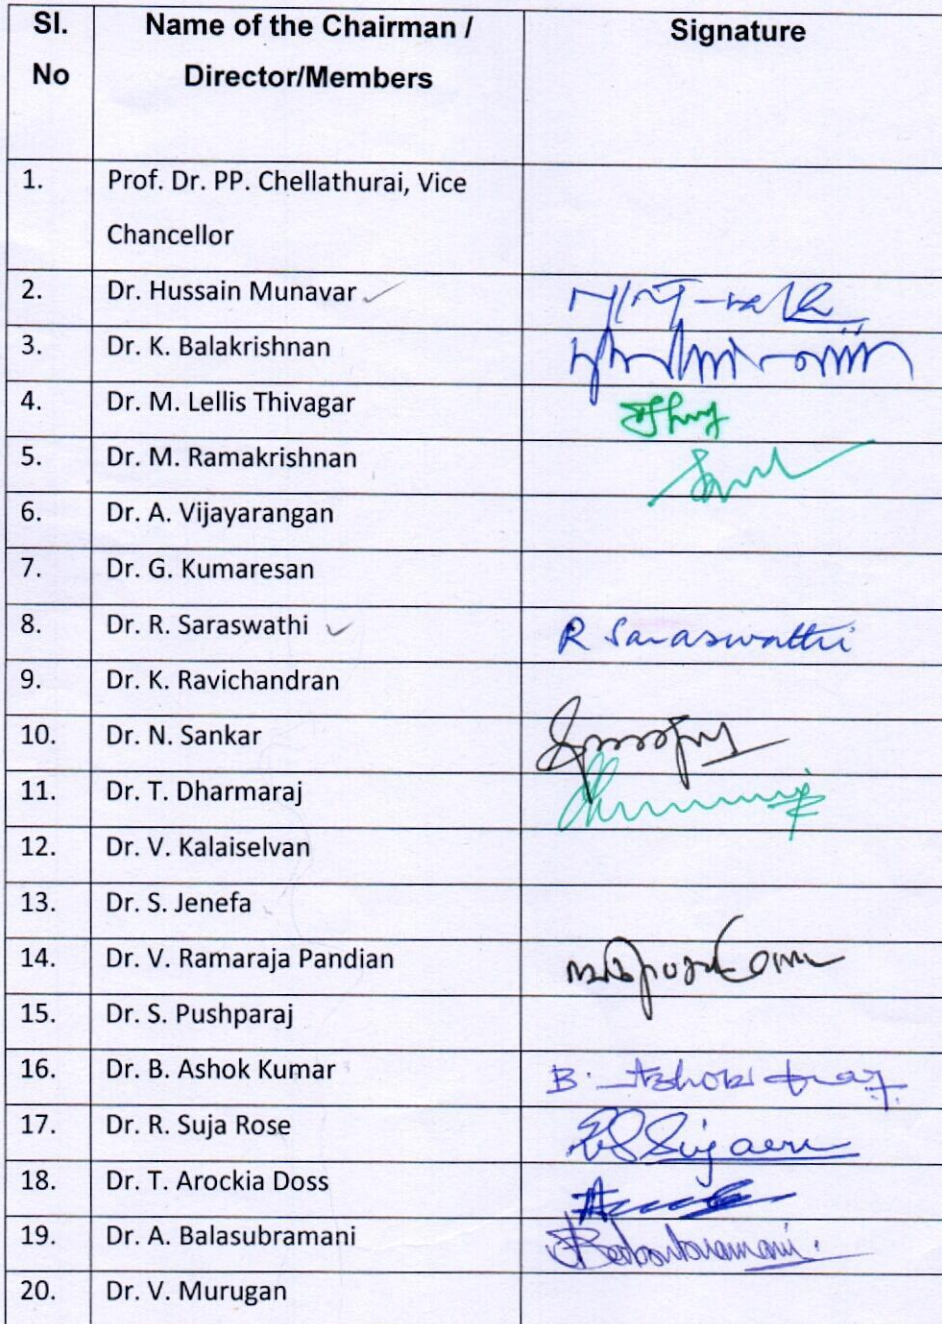 Sl.
No
Name of the Chairman /
Director/Members
Signature
1.
Prof. Dr. PP. Chellathurai, Vice
Chancellor
2.
Dr. Hussain Munavar
3.
Dr. K. Balakrishnan
4.
Dr. M. Lellis Thivagar
5.
Dr. M. Ramakrishnan
6.
Dr. A. Vijayarangan
7.
Dr. G. Kumaresan
8.
Dr. R. Saraswathi
R Saraswathi
9.
Dr. K. Ravichandran
10.
Dr. N. Sankar
11.
Dr. T. Dharmaraj
12.
Dr. V. Kalaiselvan
13.
Dr. S. Jenefa
14.
Dr. V. Ramaraja Pandian
15.
Dr. S. Pushparaj
16.
Dr. B. Ashok Kumar
B. Ashok
17.
Dr. R. Suja Rose
18.
Dr. T. Arockia Doss
19.
Dr. A. Balasubramani
20.
Dr. V. Murugan